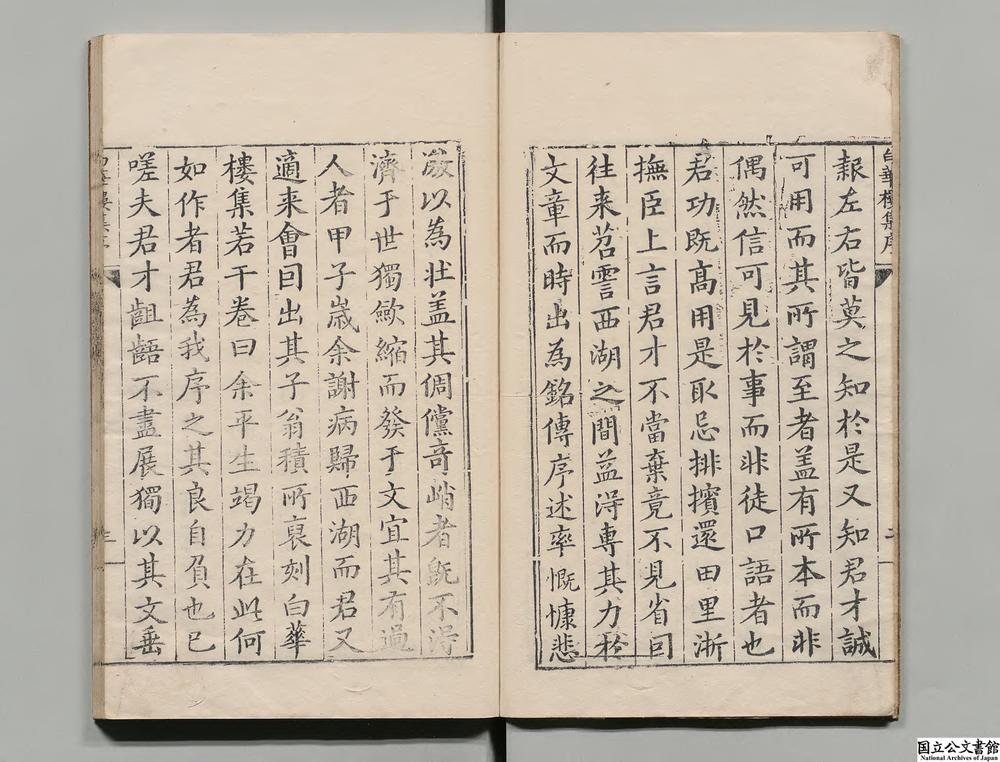 白華樓集序
報左右皆莫之知於是又知君才誠
可用而其所謂至者盖有所本而非
偶然信可見於事而非徒口語者也
君功既高用是取忌排擯還田里浙
撫臣上言君才不當棄竟不見省囙
徃来苕霅西湖之間益淂專其力於
文章而時出為銘傳序述率慨慷悲
二
激以為壮盖其倜儻竒峭者既不淂
濟于世獨歛縮而發于文宜其有過
人者甲子嵗余謝病歸西湖而君又
適来會囙出其子翁積所裒刻白華
樓集若干卷曰余平生竭力在此何
如作者君為我序之其良自負也已
嗟夫君才齟齬不盡展獨以其文垂
三
国立公文書館
National Archives of Japan